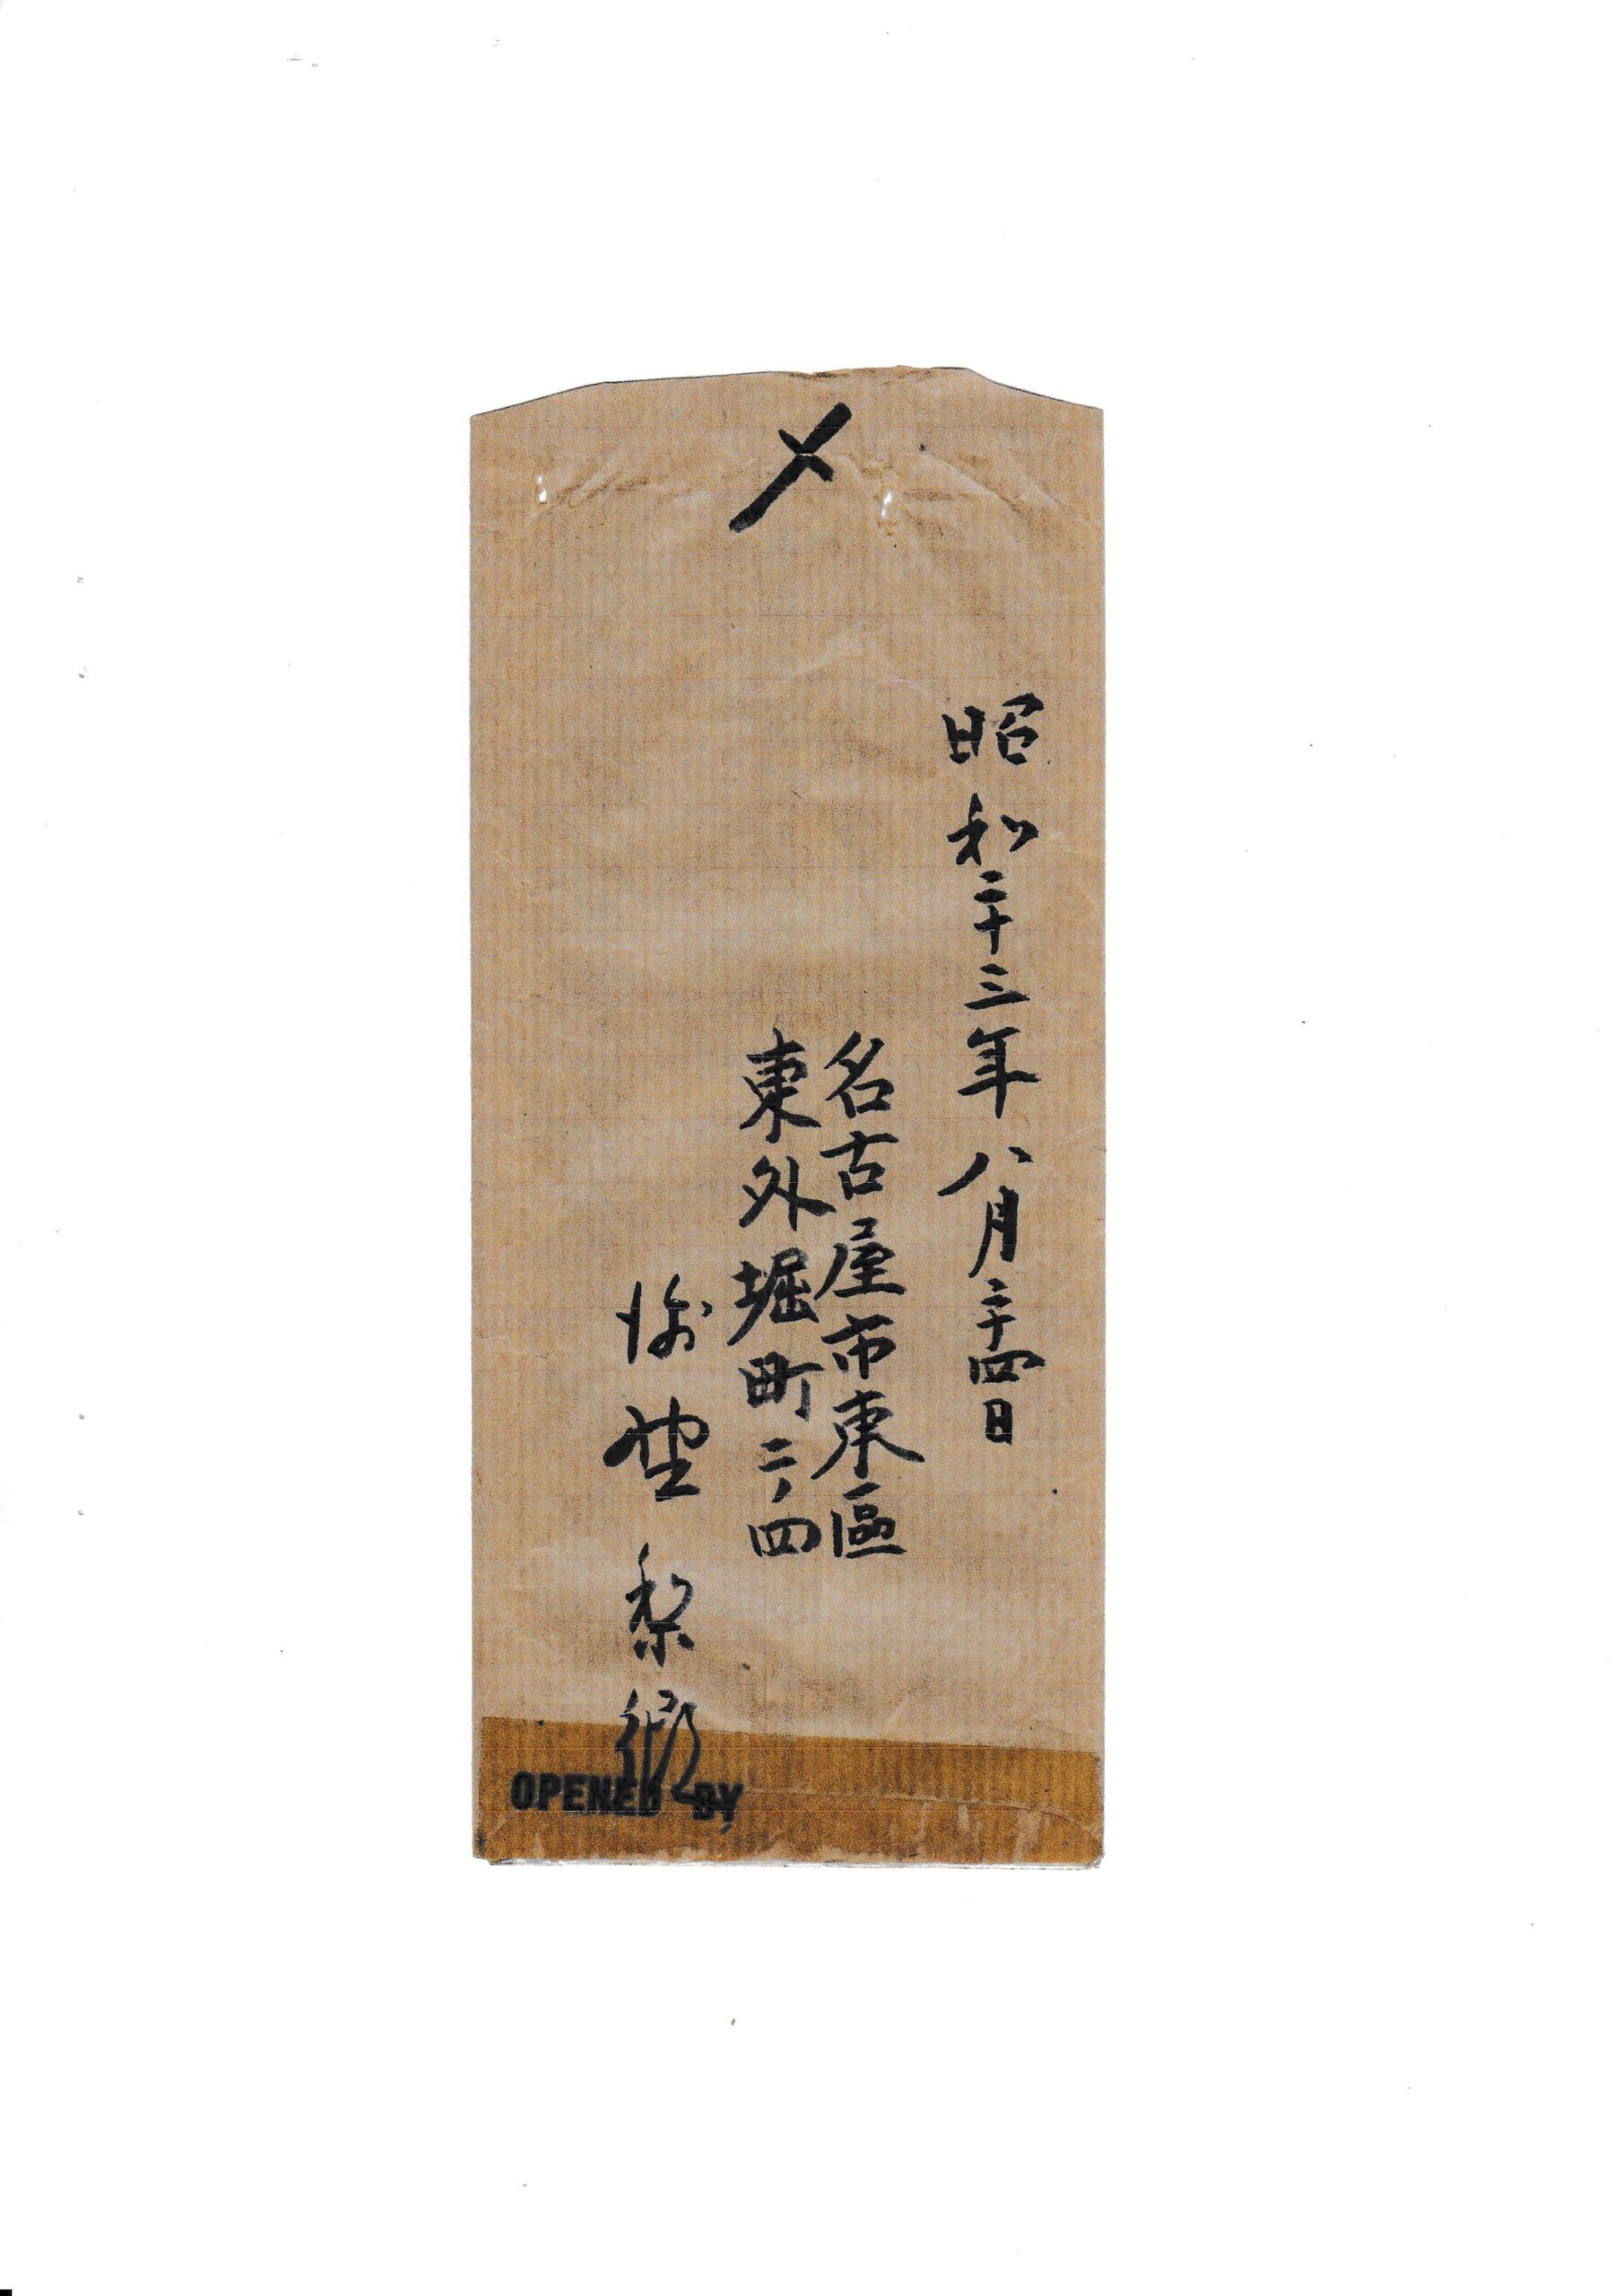 〆
昭和二十三年八月二十四日
名古屋市東區
東外堀町二ノ四
埜梨郷
OPENED BY